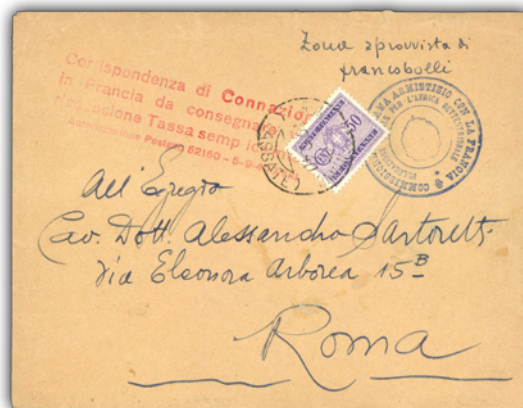 Zona sprovvista di
francobolli
Corrispondenza di Connazio
in Francia da consegnare
Tassa semp
Autorizzazione Postale 52160 - 5-9-
50
TASSATE
COMMISSIONE ARMISTIZIO CON LA FRANCIA
PER L'AFRICA SETTENTRIONALE
All' Egregio
Cav. Dott. Alessandro Sartoretti
Via Eleonora Arborea 15B
Roma